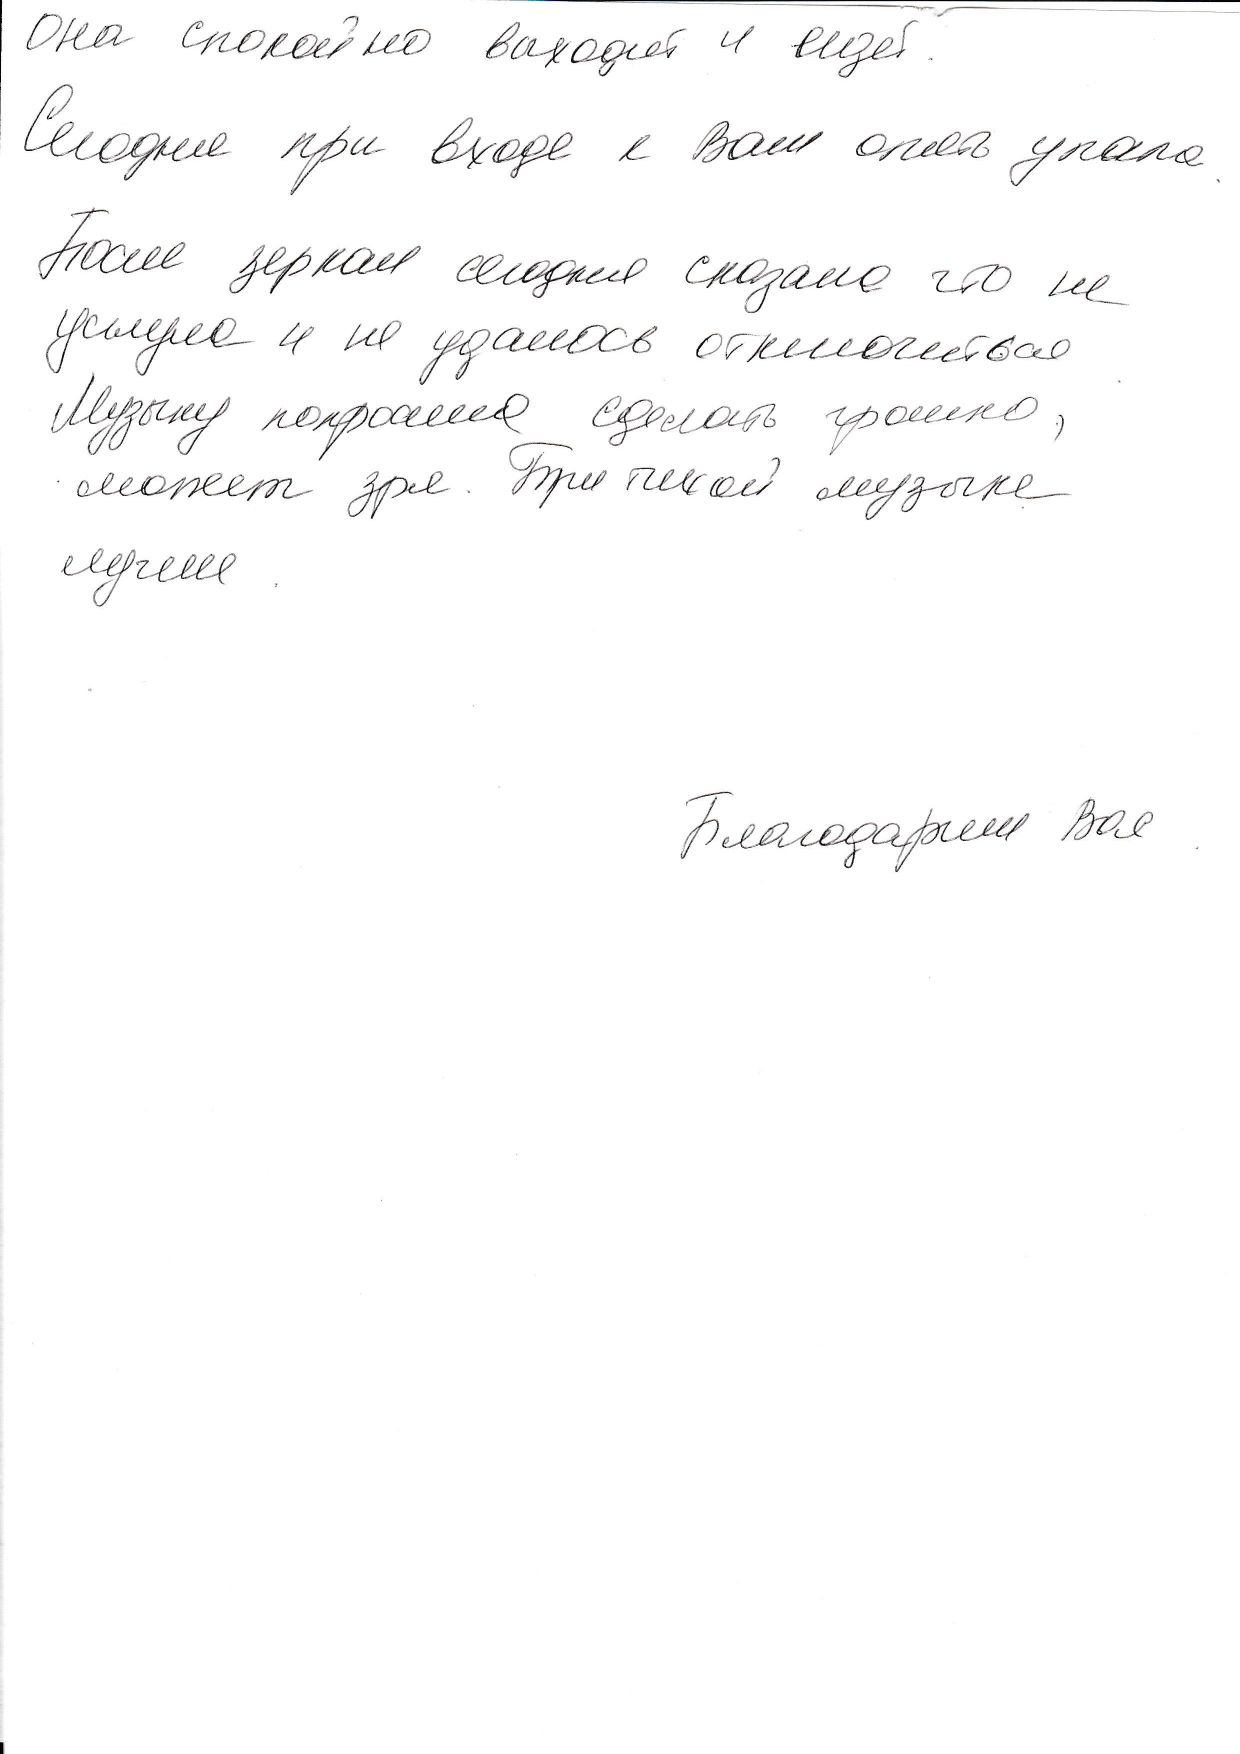 Она спокойно выходит и ищет.
Сегодня при входе к Вам опять упала.
После зеркал сегодня сказала что не
уснула и не удалось отключиться
Музыку попросила сделать громко,
может зря. При тихой музыке
лучше.
Благодарим Вас.